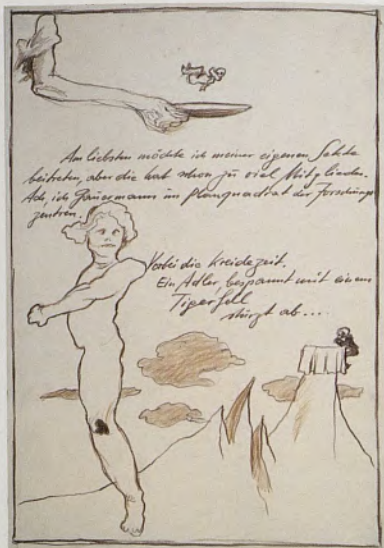 Am liebsten möchte ich meiner eigenen Sekte
beitreten, aber die hat schon zu viel Mitglieder.
Ach, ich Gänsemann im Planquadrat der Forschungs
zentren.
Vorbei die Kreidezeit.
Ein Adler, bespannt mit einem
Tigerfell
stürzt ab...